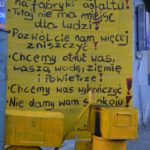 na fabryki asfaltu!
Tutaj nie ma miejsc
dla ludzi!
Pozwólcie nam więcej
zniszczyć!
• Chcemy otruć was,
waszą wodę, ziemię
i Powietrze!
• Chcemy was wykończyć
• Nie damy wam spokoju!